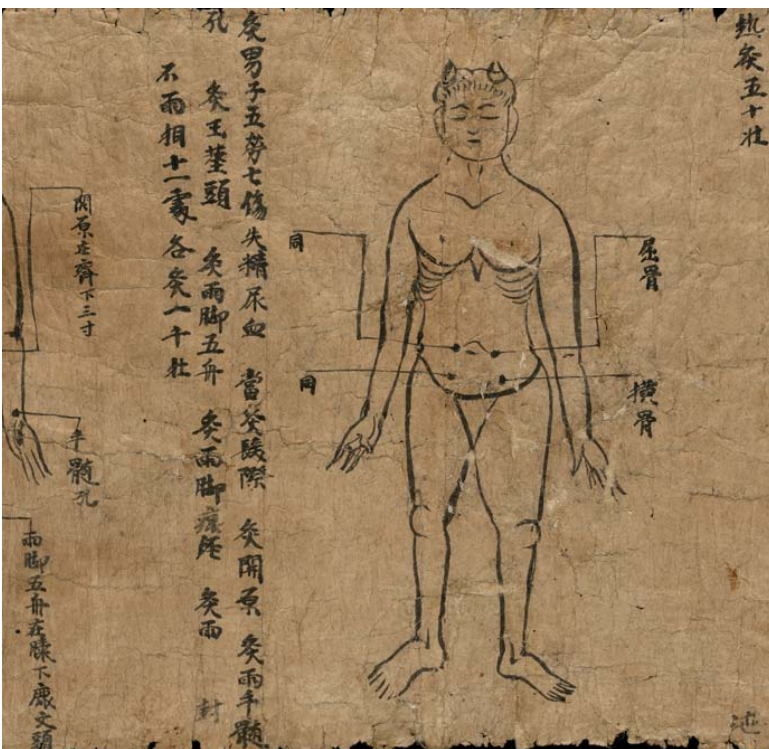 熱灸五十壯
屈骨
横骨
同
同
灸男子五勞七傷失精尿血 當灸 際 灸關原 灸兩手髓
孔 灸玉莖頭 灸兩脚五舟 灸兩脚 灸兩
不兩相十一處各灸一千壯
関原在臍下三寸
手髓孔
兩脚五舟在膝下 文頭